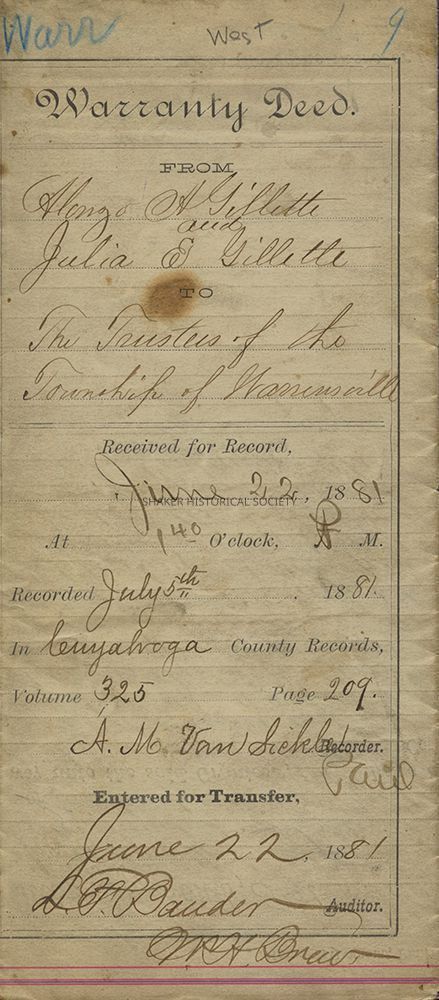 Warr West 9
Warranty Deed.
FROM
Alonzo A Gillette
and
Julia E Gillette
TO
The Trustees of the
Township of Warrensville
Received for Record,
June 22, 1881
SHAKER HISTORICAL SOCIETY
At 1 40 O'clock, P M.
Recorded July 5th 1881.
In Cuyahoga County Records,
Volume 325 Page 209.
A. M. Van Sickle Recorder.
Paid
Entered for Transfer,
June 22. 1881
Bauder Auditor.